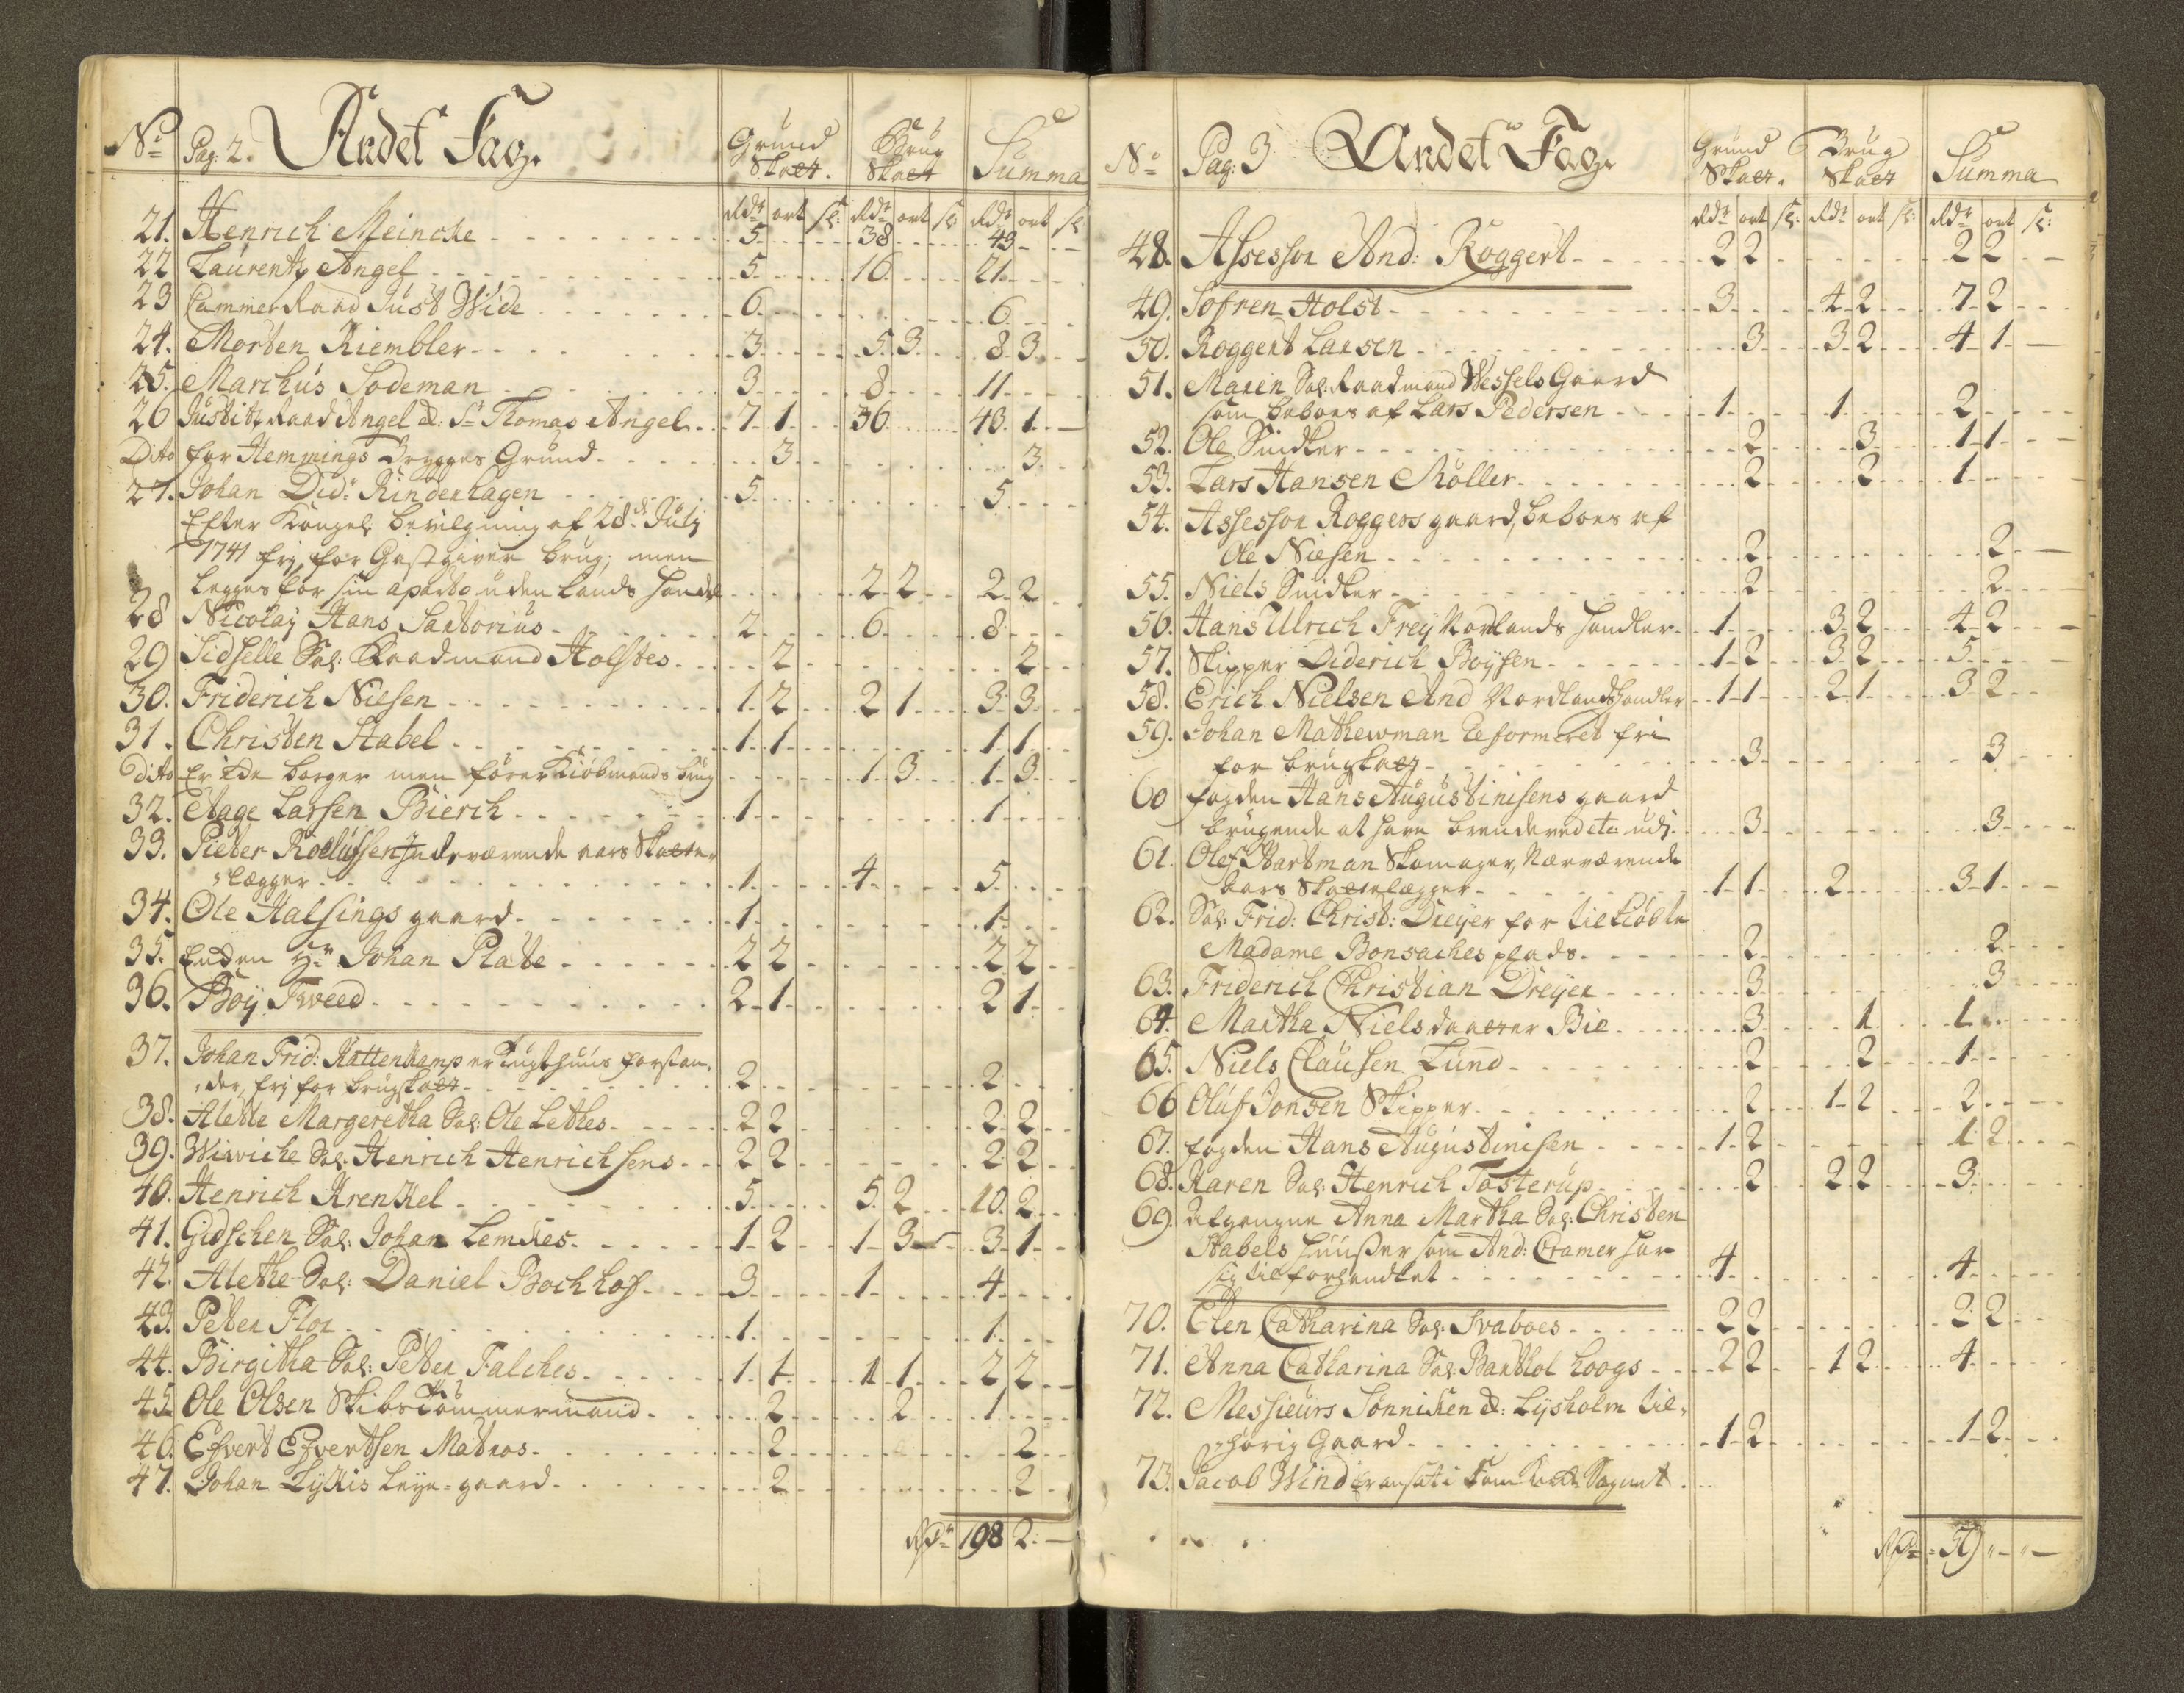 No Pag: 2. Andet Fag. Grund Skatt. Brug Skatt Summa
Rdr ort sl: Rdr ort sl: Rdr ort sl
21. Henrich Meincke 5 38 43
22 Laurentz Angel 5 16 21
23 Cammer Raad Just Wide 6 6
24. Morten Kiembler 3 5 3 8 3
25. Marchus Sodeman 3 8 11
26 Justitz Raad Angel et: Sr Thomas Angel 7 1 36 43 1
Dito for Hemmings Brygges Grund 3 3
27. Johan Didr Rindenhagen 5 5
Efter Kongel: bevilgning af 28de July
1741 fry for Gastgiver brug; men
legges for sin aparte uden Lands handel 2 2 2 2
28 Nicolay Hans Sartorius 2 6 8
29 Sidselle Sal: Raadmand Holstes 2 2
30. Friderich Nilsen 1 2 2 1 3 3
31. Christen Stabel 1 1 1 1
dito Er ede borger men fører Kiøbmands brug 1 3 1 3
32. Aage Larsen Bierch 1 1
33. Pieter Roelufsen Inderværende aars Skatte-
lægger 1 4 5
34. Ole Halsings gaard 1 1
35. Enden Hr Johan Plate 2 2 2 2
36. Boy Tweed 2 1 2 1
37. Johan Frid: Kattenkamp er Tugthuus forstan-
der, fri for brugskatt 2 2
38. Alette Margeretha Sal: Ole Lethes 2 2 2 2
39. Wiwiche Sal: Henrich Henrichsens 2 2 2 2
40. Henrich Krenkel 5 5 2 10 2
41. Gidschen Sal: Johan Lemkes 1 2 1 3 3 1
42. Alethe Sal: Daniel Bochhof 3 1 4
43. Peter Flor 1 1
44. Birgitha Sal: Peter Falches 1 1 1 1 2 2
45. Ole Olsen Skibs Tømmermand 2 2 1
46. Efvert Efvertsen Matros 2 2
47. Johan Lykkis Leye-gaard 2 2
Rdr 198 2
No Pag: 3 Andet Fag. Grund Skatt. Brug Skatt Summa
Rdr ort sl: Rdr ort sl: Rdr ort sl:
48. Assessor And: Roggert 2 2 2 2
49. Sofren Holst 3 4 2 7 2
50. Roggert Larsen 3 3 2 4 1
51. Maren Sal: Raadmand Wessels Gaard
som beboes af Lars Pedersen 1 1 2
52. Ole Snidker 2 3 1 1
53. Lars Hansen Møller 2 2 1
54. Assessor Roggers gaard, beboes af
Ole Nielsen 2 2
55. Niels Snidker 2 2
56. Hans Ulrich Frey Nordlands handler 1 3 2 4 2
57. Skipper Diderich Boysen 1 2 3 2 5
58. Erich Nielsen And Nordlandshandler 1 1 2 1 3 2
59. Johan Mathewman Reformeret fri
for brugskatt 3 3
60 fogden Hans Augustinisens gaard
brugende at have brendeved etc udi 3 3
61. Olef Hartman Skomager, Nærværende
aars Skattelægger 1 1 2 3 1
62. Sal: Frid: Christ: Dreyer for tilkiøbte
Madame Bonsaches plads 2 2
63. Friderich Christian Dreyer 3 3
64. Martha Nielsdaatter Bie 3 1 1
65. Niels Clausen Lund 2 2 1
66 Oluf Jonsen Skipper 2 1 2 2
67. fogden Hans Augustinisen 1 2 1 2
68. Karen Sal: Henrich Tosterup 2 2 2 3
69. Afgangne Anna Martha Sal: Christen
Stabels huuser som And: Cramer har
sig tilforhandlet 4 4
70. Elen Catharina Sal: Svaboes 2 2 2 2
71. Anna Catharina Sal: Barthol Hoogs 2 2 1 2 4
72. Messieurs Sønniken et: Lysholm til-
hørig Gaard 1 2 1 2
73. Jacob Wind
Rdr 59